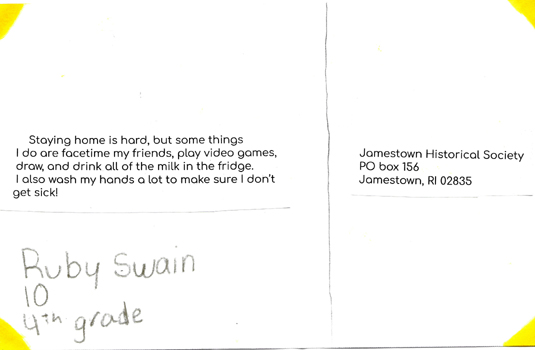 Staying home is hard, but some things
I do are facetime my friends, play video games,
draw, and drink all of the milk in the fridge.
I also wash my hands a lot to make sure I don't
get sick!
Ruby Swain
10
4th grade
Jamestown Historical Society
PO box 156
Jamestown, RI 02835